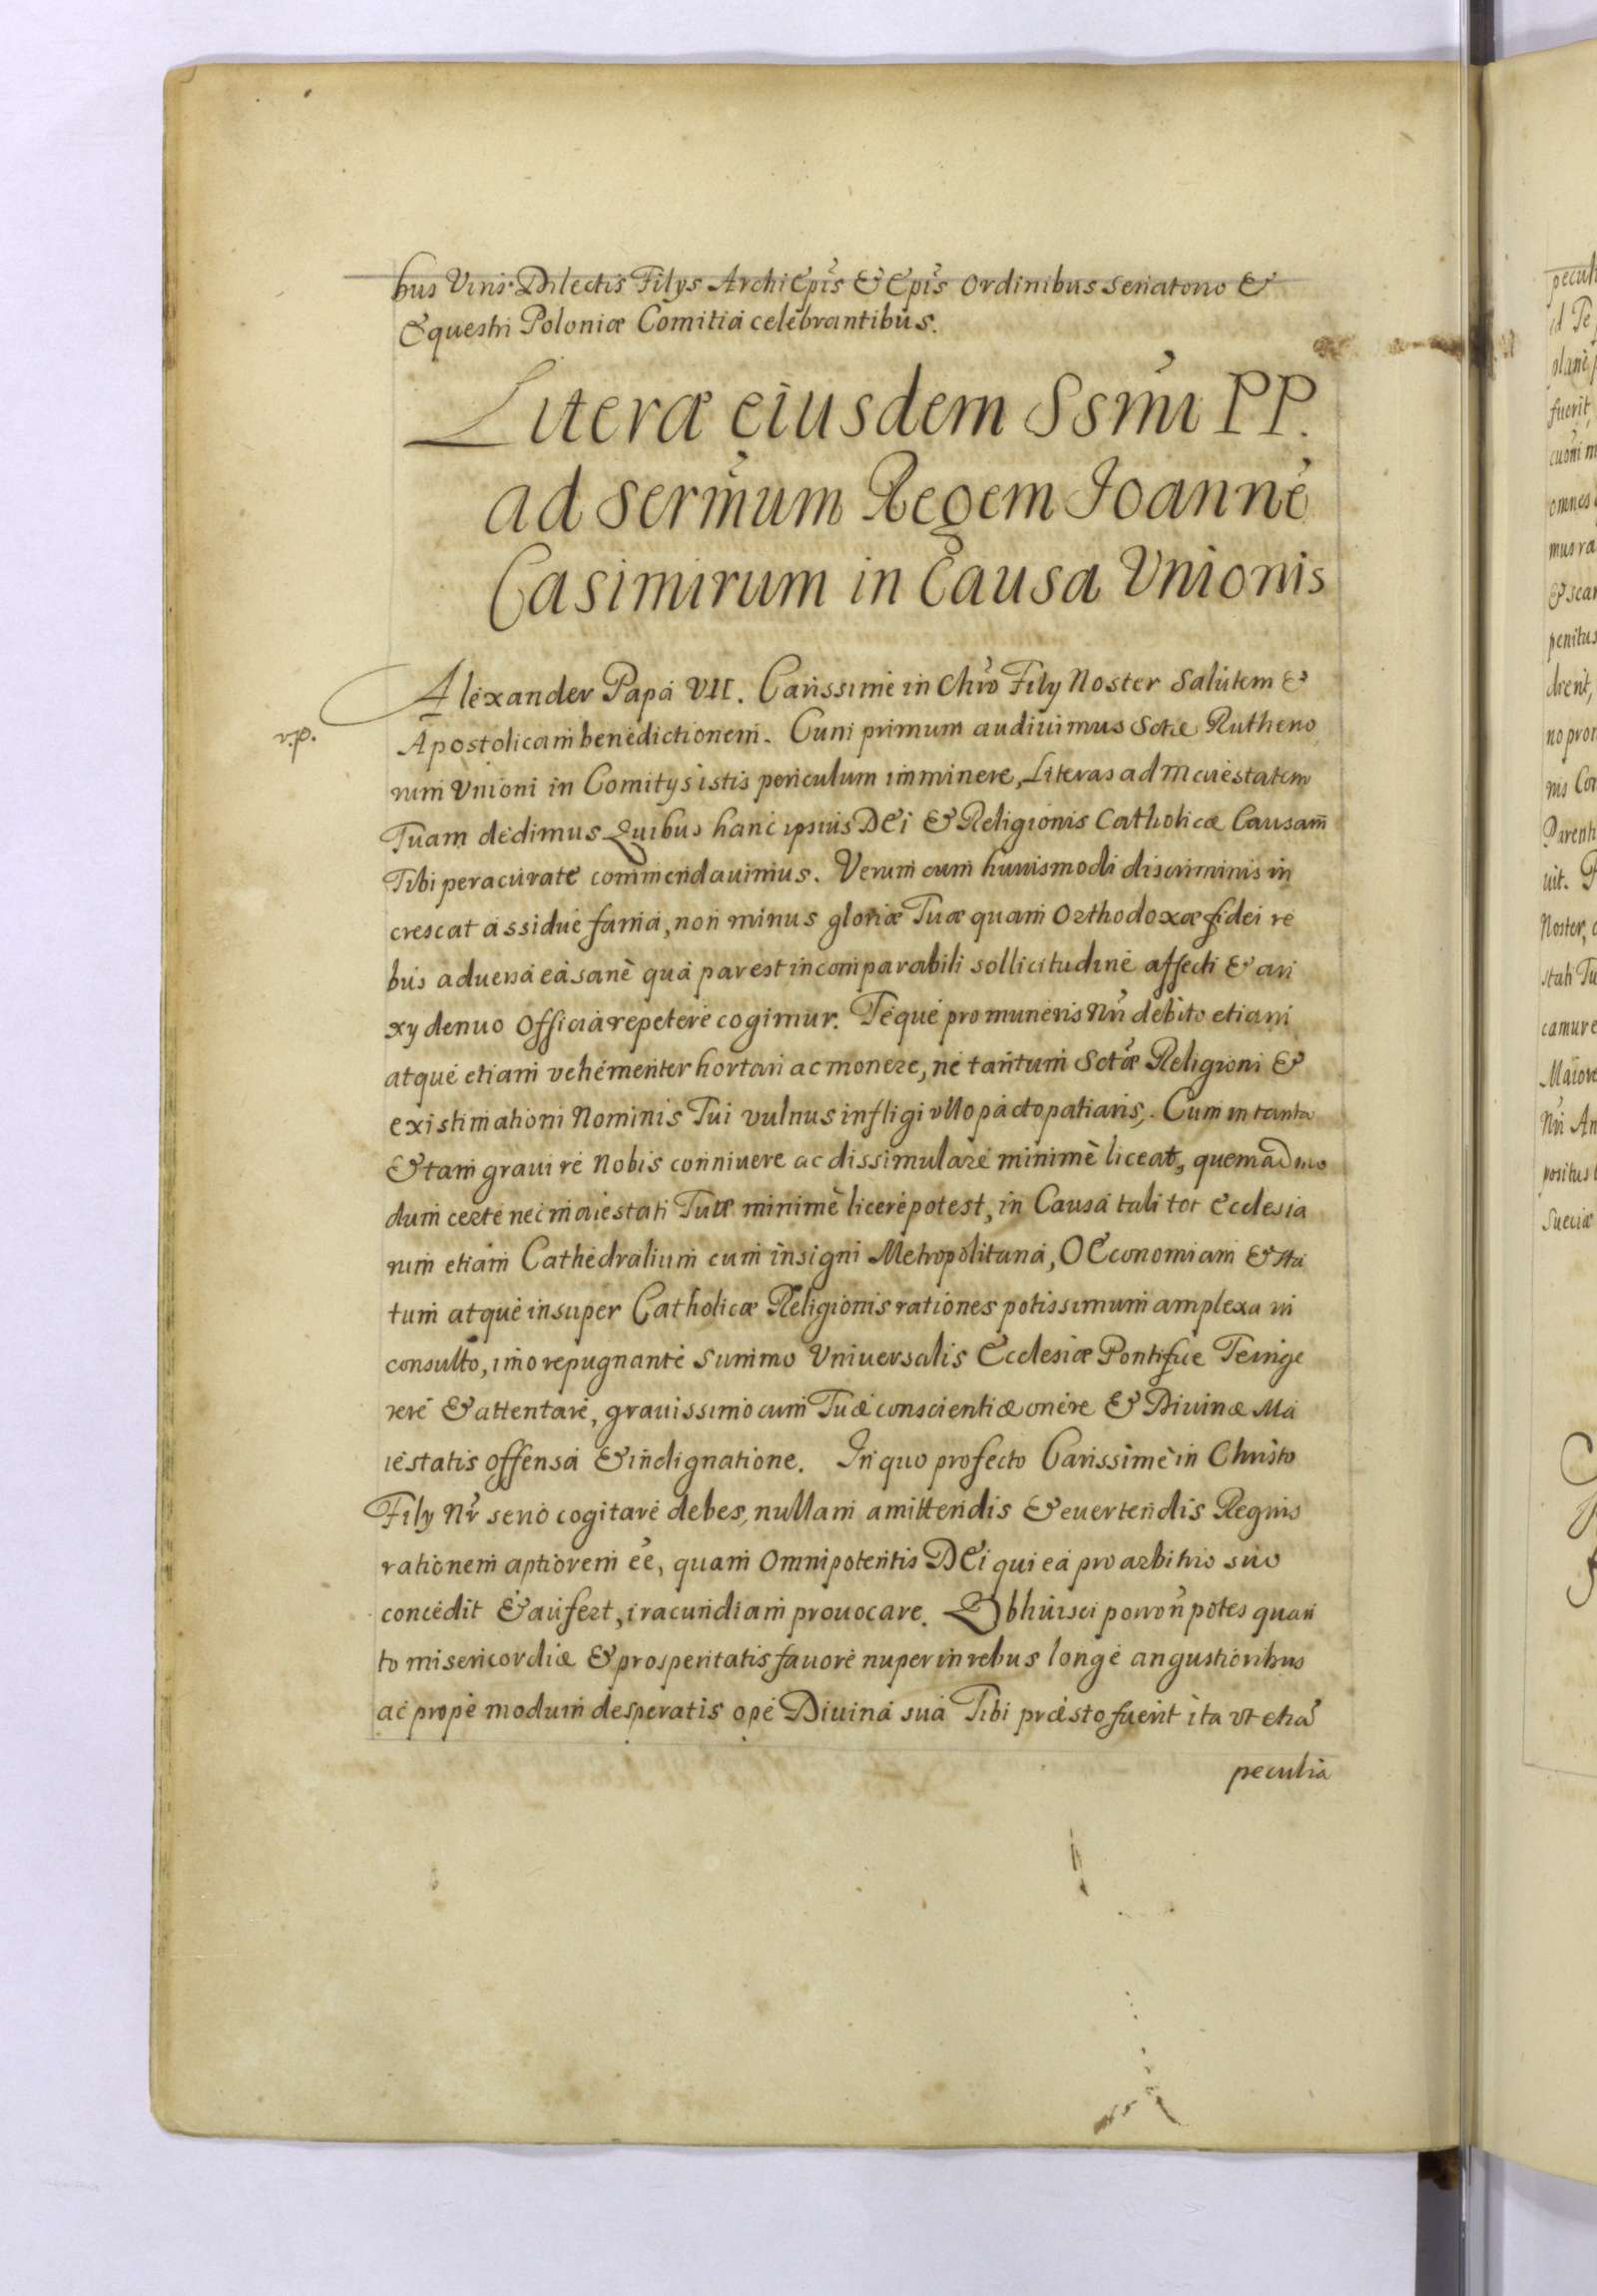 bus Viris Dilectis Filys ArchiEpĩs & Epĩs Ordinibus Senatorio &
Equestri Poloniæ Comitia celebrantibus.
Literæ eiusdem Ssm̃i PP.
ad Serm̃um Regem Joannẽ
Casimirum in Causa Vnionis
Alexander Papa VII. Carissime in Chrõ Fily Noster Salutem &
v.p.
Apostolicam benedictionem. Cum primum audiuimus Sctæ Rutheno
rum Vnioni in Comitys istis periculum imminere, Literas ad Maiestatem
Tuam dedimus Quibus hanc ipsius DEi & Religionis Catholicæ Causam̃
Tibi peracurate commendauimus. Verum cum huiusmodi discriminis in
crescat assidue fama, non minus gloriæ Tuæ quam Orthodoxæ fidei re
bus aduersa ea sanè qua par est incomparabili sollicitudine affecti & an
xy denuo Officia repetere cogimur. Teque pro muneris Nrĩ debito etiam
atque etiam vehementer hortari ac monere, ne tantum Sctæ Religioni &
existimationi Nominis Tui vulnus infligi vllo pacto patiaris. Cum in tanta
& tam graui re Nobis conniuere ac dissimulare minimè liceat, quemadmo
dum certe nec maiestati Tuæ minimè licere potest, in Causa tali tot Ecclesia
rum etiam Cathedralium cum insigni Metropolitana, OEconomiam & sta
tum atque insuper Catholicæ Religionis rationes potissimum amplexa in
consulto, imo repugnante Summo Vniuersalis Ecclesiæ Pontifice Te inge
rere & attentare, grauissimo cum Tuæ conscientiæ onere & Diuinæ Ma
iestatis offensa & indignatione. In quo profecto Carissimè in Christo
Fily Nr̃ serio cogitare debes, nullam amittendis & euertendis Regnis
rationem aptiorem eẽ, quam Omnipotentis DEi qui ea pro arbitrio suo
concedit & aufert, iracundiam prouocare. Obliuisci porro ñ potes quan
to misericordiæ & prosperitatis fauore nuper in rebus longe angustioribus
ac prope modum desperatis ope Diuina sua Tibi præsto fuerit ita vt etiã
peculia